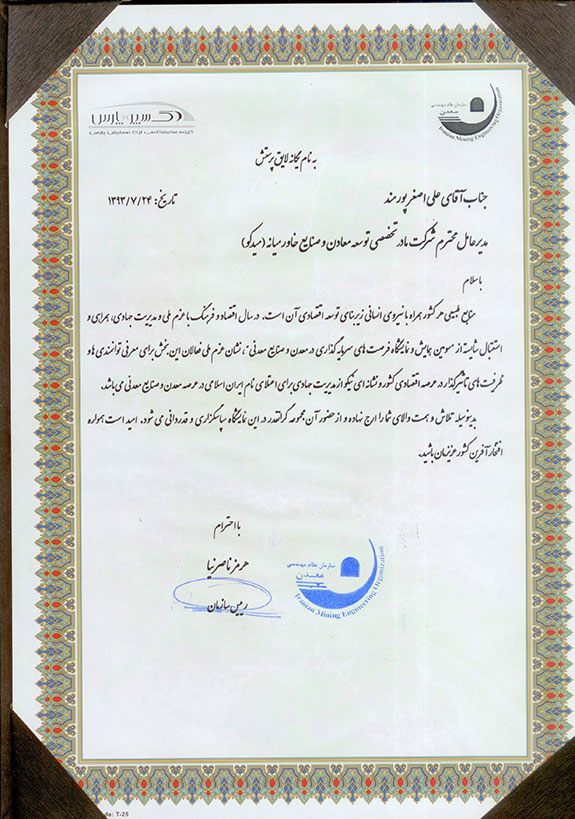 سازمان نظام مهندسی
معدن
Iranian Mining Engineering Organization
اکسیر پارس
به نام یگانه لایق پرستش
جناب آقای علی اصغر پورمند
تاریخ: ۱۳۹۳/۷/۲۴
مدیر عامل محترم شرکت مادر تخصصی توسعه معادن و صنایع خاورمیانه (میدکو)
با سلام
منابع طبیعی هر کشور همراه با نیروی انسانی زیربنای توسعه اقتصادی آن است. در سال اقتصاد و فرهنگ با عزم ملی و مدیریت جهادی، همراهی و
استقبال شایسته از سومین همایش و نمایشگاه فرصت های سرمایه گذاری در معدن و صنایع معدنی، نشان عزم ملی فعالان این بخش برای معرفی توانمندی ها و
ظرفیت های تاثیرگذار در عرصه اقتصادی کشور و نشانه ای نیکو از مدیریت جهادی برای اعتلای نام ایران اسلامی در عرصه معدن و صنایع معدنی می باشد.
بدینوسیله تلاش و همت والای شما را ارج نهاده و از حضور آن مجموعه گرانقدر در این نمایشگاه سپاسگزاری و قدردانی می شود. امید است همواره
افتخارآفرین کشور عزیزمان باشید.
با احترام
هرمز ناصرنیا
رییس سازمان
سازمان نظام مهندسی
معدن
Iranian Mining Engineering Organization
de: T-25